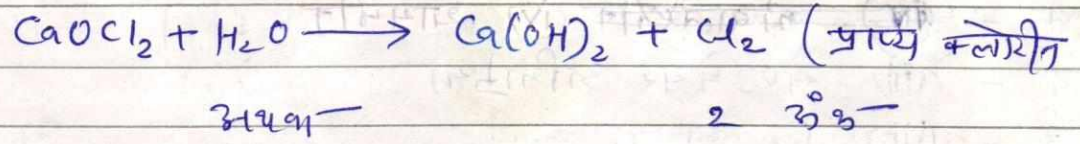 CaOCl₂ + H₂O ⟶ Ca(OH)₂ + Cl₂ (प्राप्य क्लोरीन
अथवा 2 अंक